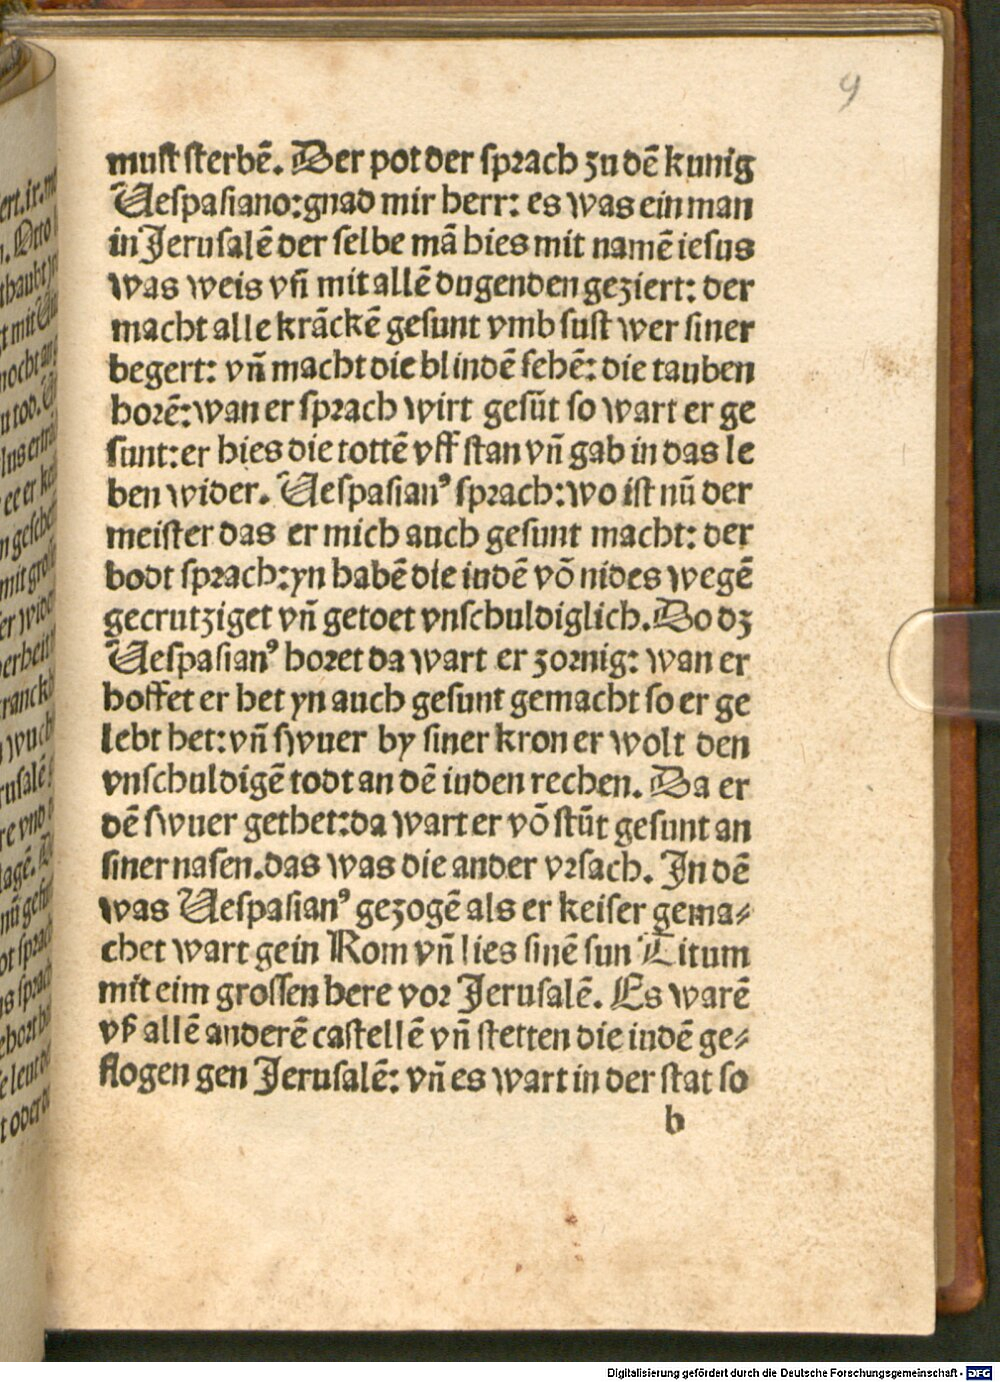 9
muſt ſterbē. Der pot der ſprach zu dē kunig
Veſpaſiano: gnad mir herr: es was ein man
in Jeruſalē der ſelbe mā hies mit namē ieſus
was weis vn̄ mit allē dugenden geziert: der
macht alle krāckē geſunt vmb ſuſt wer ſiner
begert: vn̄ macht die blindē ſehē: die tauben
horē: wan er ſprach wirt geſūt ſo wart er ge
ſunt: er hies die tottē vff ſtan vn̄ gab in das le
ben wider. Veſpaſianꝰ ſprach: wo iſt nū der
meiſter das er mich auch geſunt macht: der
bodt ſprach: yn habē die iudē vō nides wegē
gecrutziget vn̄ getoet vnſchuldiglich. Do dz
Veſpaſianꝰ horet da wart er zornig: wan er
hoffet er het yn auch geſunt gemacht ſo er ge
lebt het: vn̄ ſwuer by ſiner kron er wolt den
vnſchuldigē todt an dē iuden rechen. Da er
dē ſwuer gethet: da wart er vō ſtūt geſunt an
ſiner naſen. das was die ander vrſach. In dē
was Veſpaſianꝰ gezogē als er keiſer gema⸗
chet wart gein Rom vn̄ lies ſinē ſun Titum
mit eim groſſen here vor Jeruſalē. Es warē
vß allē anderē caſtellē vn̄ ſtetten die iudē ge⸗
flogen gen Jeruſalē: vn̄ es wart in der ſtat ſo
b
Digitalisierung gefördert durch die Deutsche Forschungsgemeinschaft - DFG